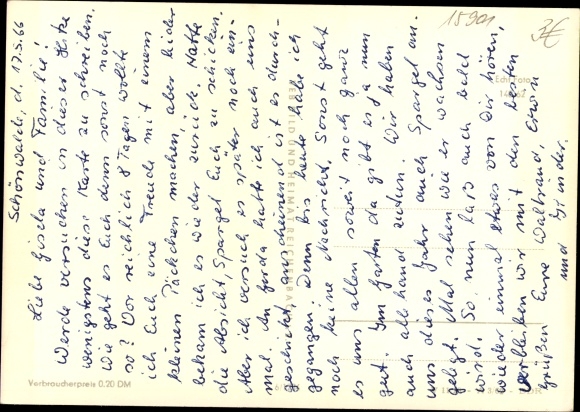 Schönwalde, d. 17.5.66
Liebe Gisela und Familie!
Werde versuchen in dieser Hitze
wenigstens diese Karte zu schreiben.
Wie geht es Euch denn sonst noch
so? Vor reichlich 8 Tagen wollte
ich Euch eine Freude mit einem
kleinen Päckchen machen, aber leider
bekam ich es wieder zurück. Hatte
die Absicht, Spargel Euch zu schicken.
Aber ich versuch es später noch ein-
mal. An Gerda hatte ich auch uns
geschickt, anscheinend ist es durch-
gegangen. Denn bis heute habe ich
noch keine Nachricht. Sonst geht
es uns allen soweit noch ganz
gut. Im Garten da gibt es ja nun
auch allerhand zutun. Wir haben
uns dieses Jahr auch Spargel an-
gelegt. Mal sehen wie er wachsen
wird. So, nun laß auch bald
wieder einmal etwas von Dir hören,
verbleiben wir mit den besten
Grüßen Eure Waltraud, Erwin
und Kinder.
15901
3€
Echt Foto
BILD UND HEIMAT REICHENBACH
Verbraucherpreis 0,20 DM